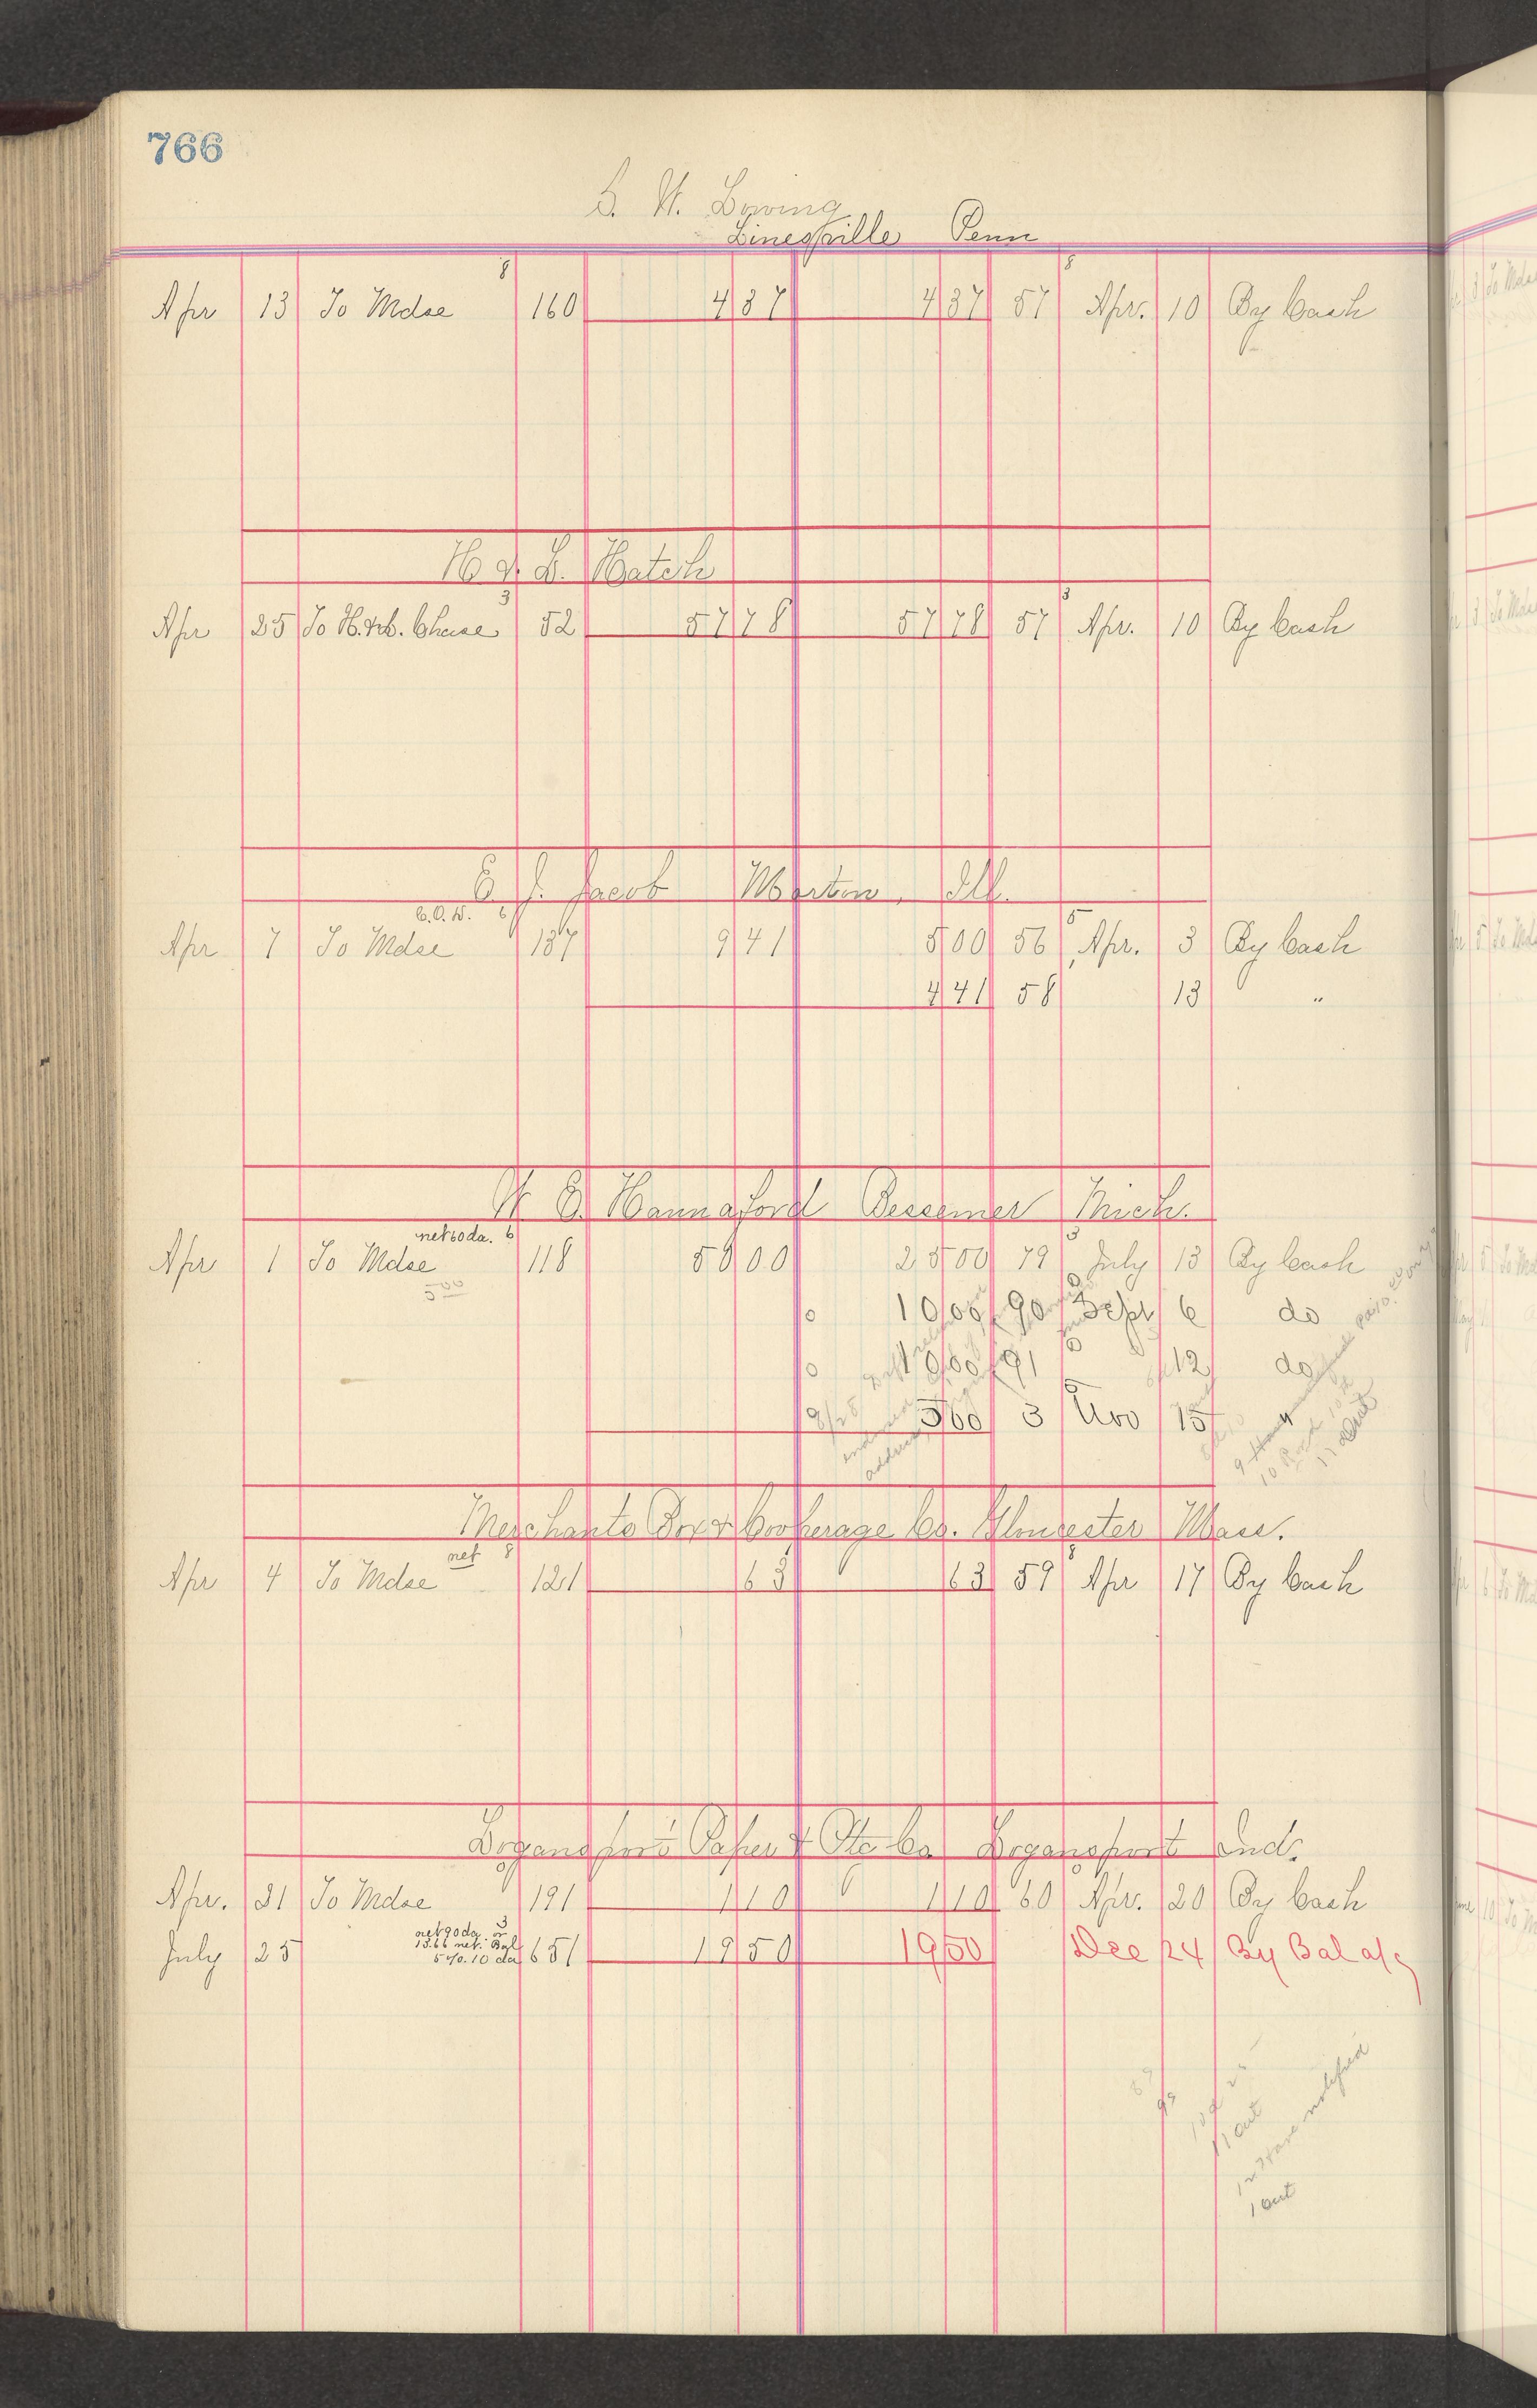 766
S. W. Lowing
Linesville Penn
Apr 13 To Mdse 8 160 4 37 4 37 57 8 Apr. 10 By Cash
H. & L. Hatch
Apr 25 To H. & L. Chase 3 52 57 78 57 78 57 3 Apr. 10 By Cash
E. J. Jacob Morton Ill.
C.O.D. 6
Apr 7 To Mdse 137 9 41 5 00 56 5 Apr. 3 By Cash
4 41 58 13 "
W. E. Hannaford Bessemer Mich.
net 60 da. 6
Apr 1 To Mdse 118 50 00 25 00 79 5 July 13 By Cash
5 00
10 00 90 Sept 6 do
10 00 91 12 do
5 00 3 Nov 15 "
Merchants Box & Cooperage Co. Gloucester Mass.
net 8
Apr 4 To Mdse 121 63 63 59 8 Apr 17 By Cash
Logansport Paper & Co Logansport Ind.
Apr. 21 To Mdse 191 1 10 1 10 60 Apr. 20 By Cash
net 90 da. or 3
15.66 net. Bal
5%. 10 da
July 25 651 19 50 19 50 Dec 24 By Bal a/c
11 out
12 Have notified
1 out